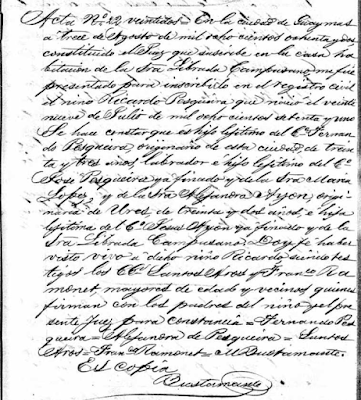 Acta No. 22 veintidos = En la ciudad de Guaymas
a trece de Agosto de mil ochocientos ochenta y dos
constituido el Juez que suscribe en la casa ha-
bitacion de la Sra Librada Campusano, me fué
presentado para inscribirlo en el registro civil
el niño Ricardo Pesqueira que nació el veinti
nueve de Julio de mil ochocientos setenta y uno
Se hace constar que es hijo lejítimo del Co. Fernan
do Pesqueira, originario de esta ciudad, de trein
ta y tres años, labrador é hijo lejítimo del Co.
José Pesqueira ya finado y de la Sra Maria
Lopez, y de la Sra Alejandra Ayon, origi
naria de Ures, de treinta y dos años, é hija
lejítima del Co. Jesus Ayon ya finado y de la
Sra Librada Campusano. Doy fé haber
visto vivo a dicho niño Ricardo siendo tes
tigos los CC. Santos Aros y Franco. Ra
monet, mayores de edad y vecinos, quienes
firman con los padres del niño y el pre
sente Juez para constancia = Fernando Pes
queira = Alejandra de Pesqueira = Santos
Aros = Franco. Ramonet = M Bustamante.
Es copia
Bustamante